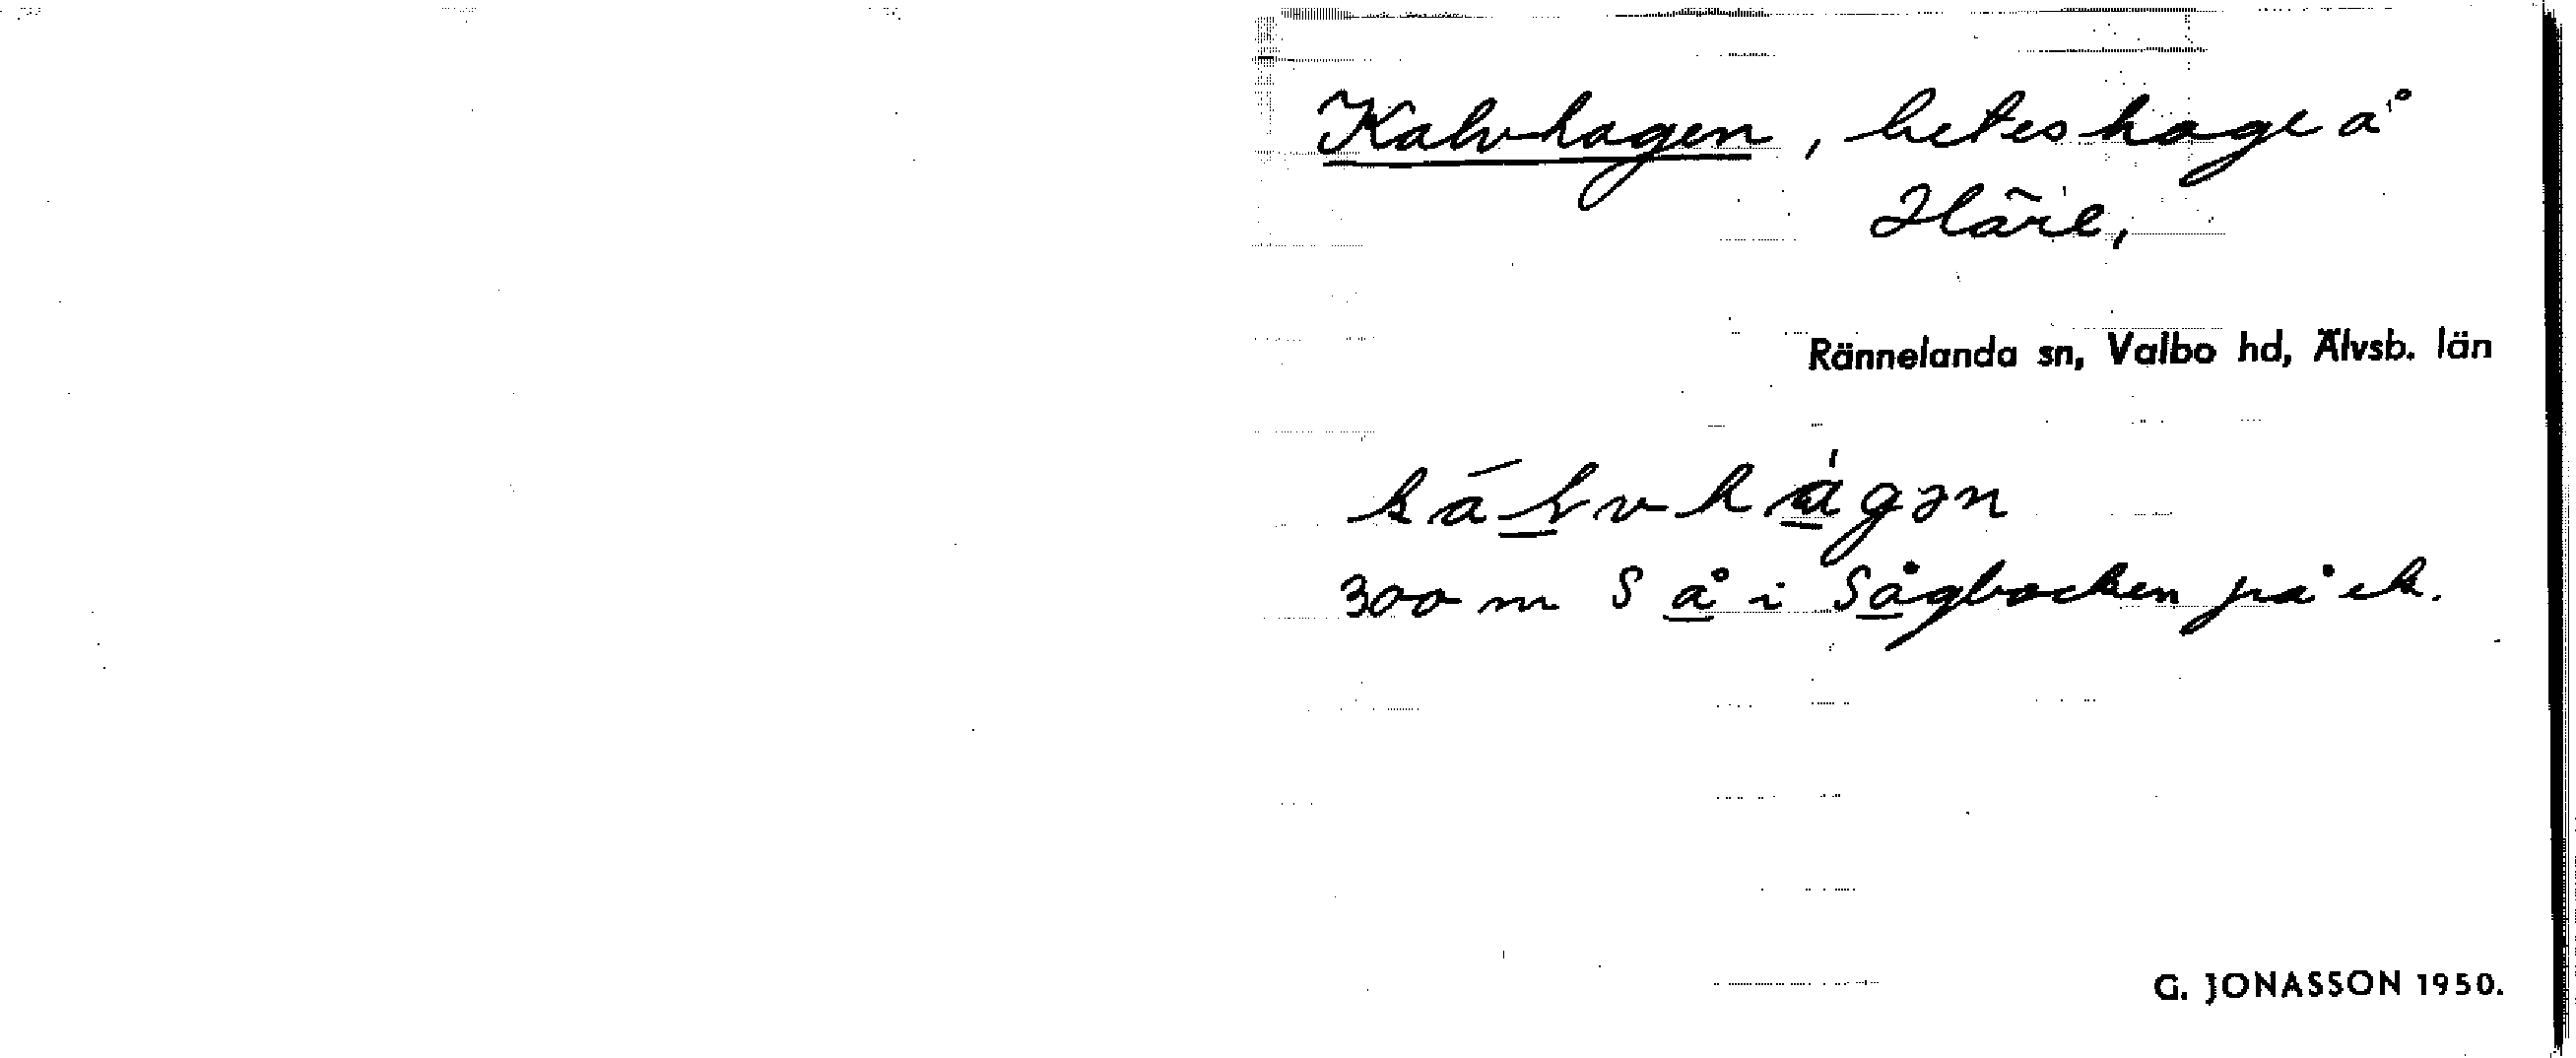 Kalvhagen, beteshage å
Häre,
Rännelanda sn, Valbo hd, Älvsb. län
kálvhàgən
300 m S å i Sågbocken på ek.
G. JONASSON 1950.